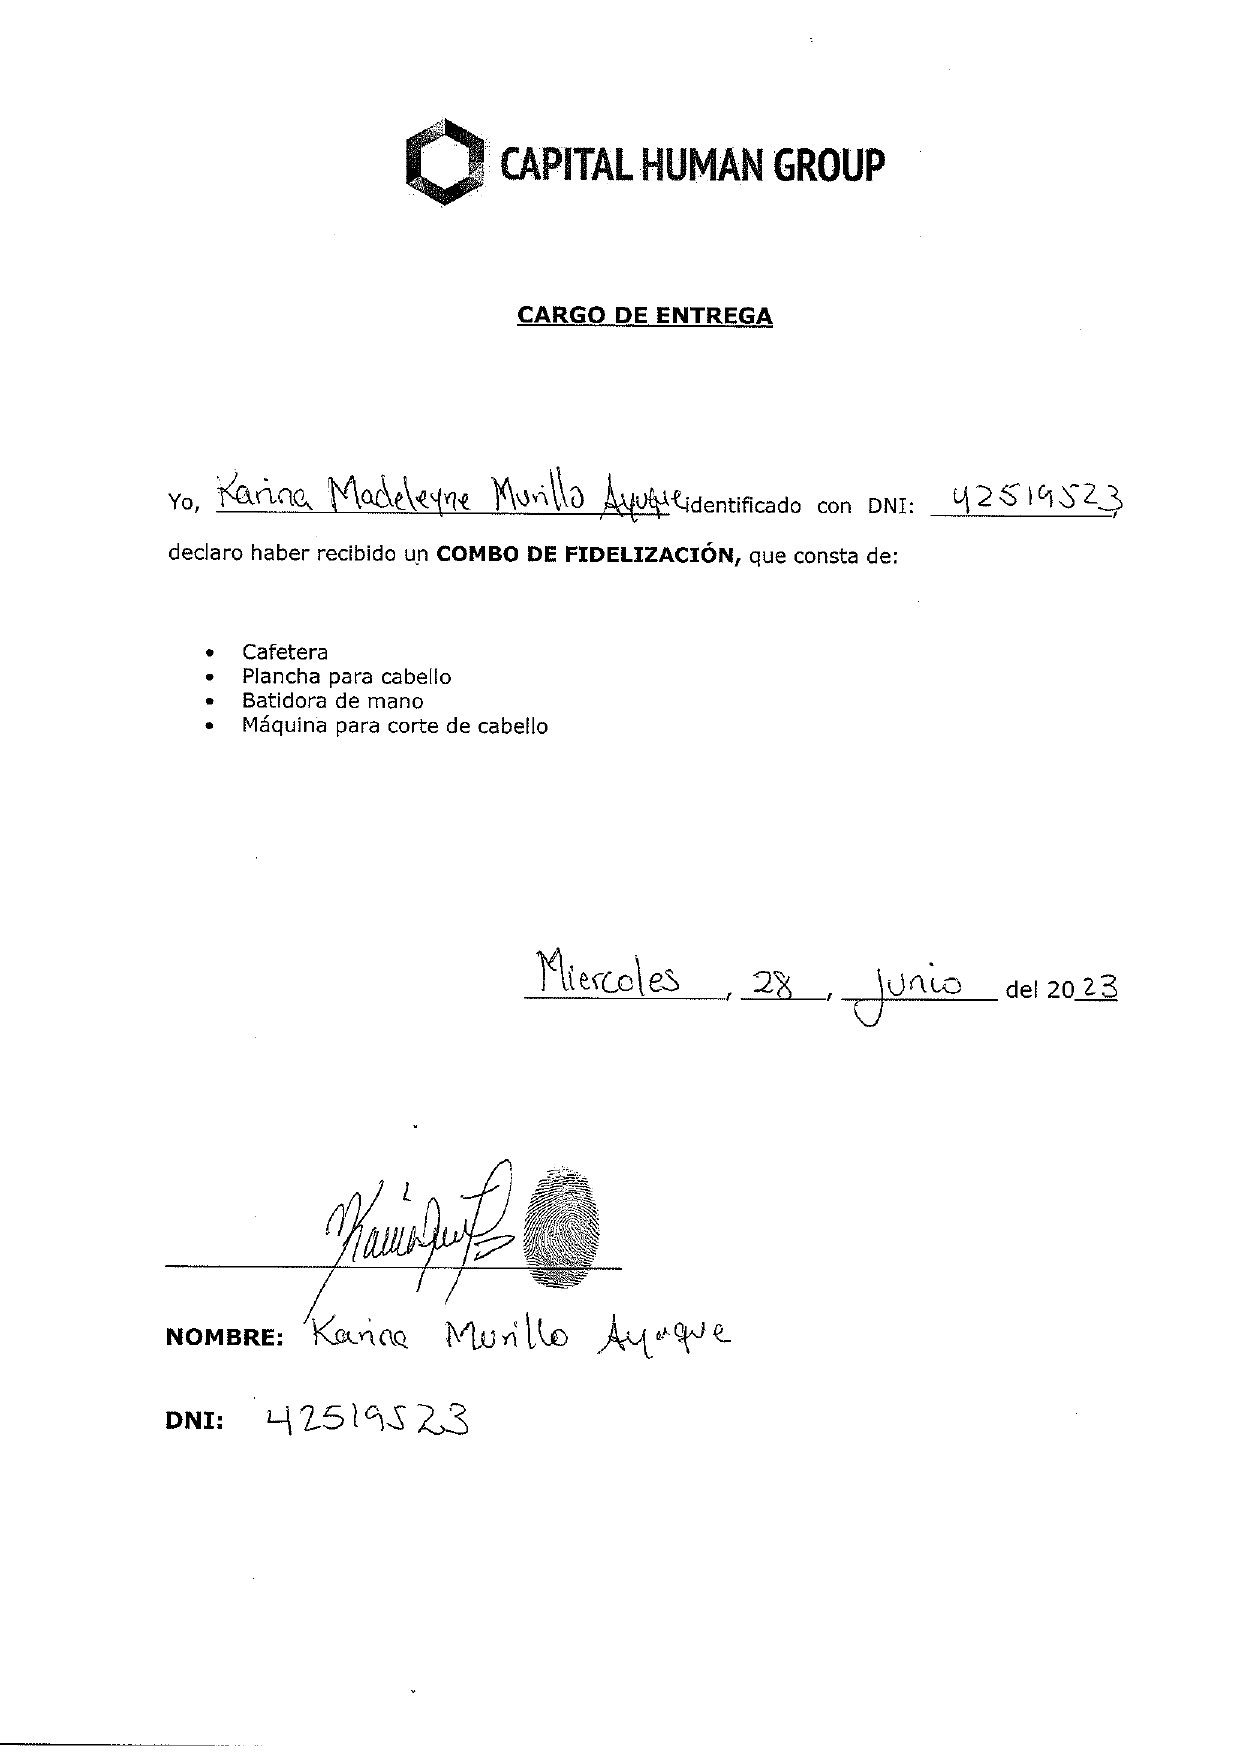 CAPITAL HUMAN GROUP
CARGO DE ENTREGA
Yo, Karina Madeleyne Murillo Ayuque identificado con DNI: 42519523,
declaro haber recibido un COMBO DE FIDELIZACIÓN, que consta de:
• Cafetera
• Plancha para cabello
• Batidora de mano
• Máquina para corte de cabello
Miercoles, 28, junio del 2023
NOMBRE: Karina Murillo Ayuque
DNI: 42519523